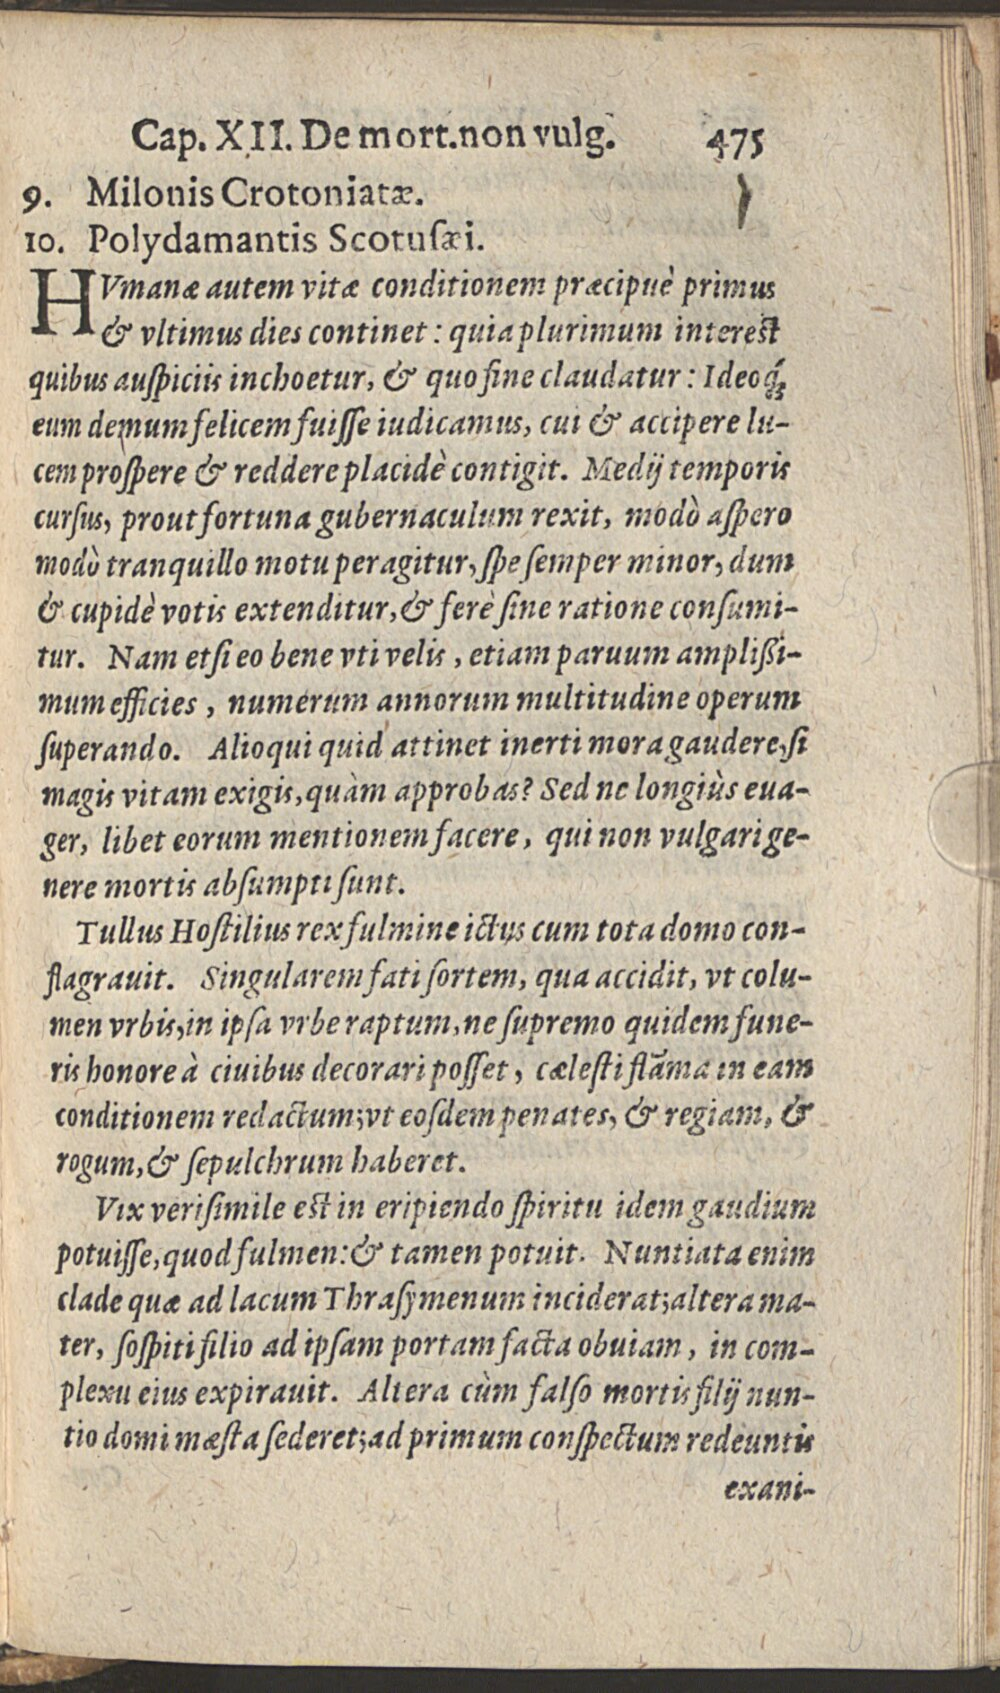 Cap. XII. De mort. non vulg. 475
9. Milonis Crotoniatæ.
10. Polydamantis Scotuſæi.
HVmanæ autem vitæ conditionem præcipuè primus
& vltimus dies continet: quia plurimum intereſt
quibus auſpiciis inchoetur, & quo fine claudatur: Ideoq́;
eum demum felicem fuiſſe iudicamus, cui & accipere lu-
cem proſpere & reddere placidè contigit. Medij temporis
curſus, prout fortuna gubernaculum rexit, modò aſpero
modò tranquillo motu peragitur, ſpe ſemper minor, dum
& cupidè votis extenditur, & ferè ſine ratione conſumi-
tur. Nam etſi eo bene vti velis, etiam paruum ampliſſi-
mum efficies, numerum annorum multitudine operum
ſuperando. Alioqui quid attinet inerti mora gaudere, ſi
magis vitam exigis, quàm approbas? Sed ne longiùs eua-
ger, libet eorum mentionem facere, qui non vulgari ge-
nere mortis abſumpti ſunt.
Tullus Hoſtilius rex fulmine ictus cum tota domo con-
flagrauit. Singularem fati ſortem, qua accidit, vt colu-
men vrbis, in ipſa vrbe raptum, ne ſupremo quidem fune-
ris honore à ciuibus decorari poſſet, cæleſti flāma in eam
conditionem redactum; vt eoſdem penates, & regiam, &
rogum, & ſepulchrum haberet.
Vix veriſimile eſt in eripiendo ſpiritu idem gaudium
potuiſſe, quod fulmen: & tamen potuit. Nuntiata enim
clade quæ ad lacum Thraſymenum inciderat; altera ma-
ter, ſoſpiti filio ad ipſam portam facta obuiam, in com-
plexu eius expirauit. Altera cùm falſo mortis filij nun-
tio domi mæſta ſederet; ad primum conſpectum redeuntis
exani-